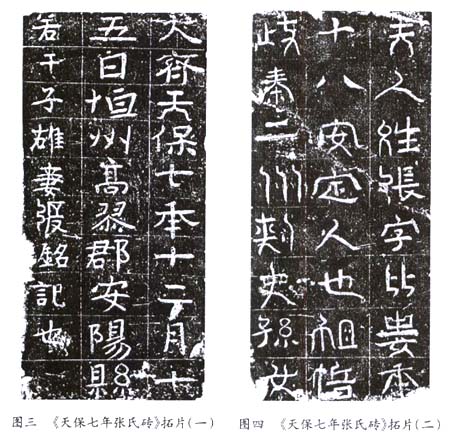 大齊天保七年十二月十
五日恒州高翏郡安陽縣
若干子雄妻張銘記也
夫人姓張字比年
十八安定人也祖
歧秦二州刾史孫女
图三 《天保七年张氏砖》拓片(一)
图四 《天保七年张氏砖》拓片(二)